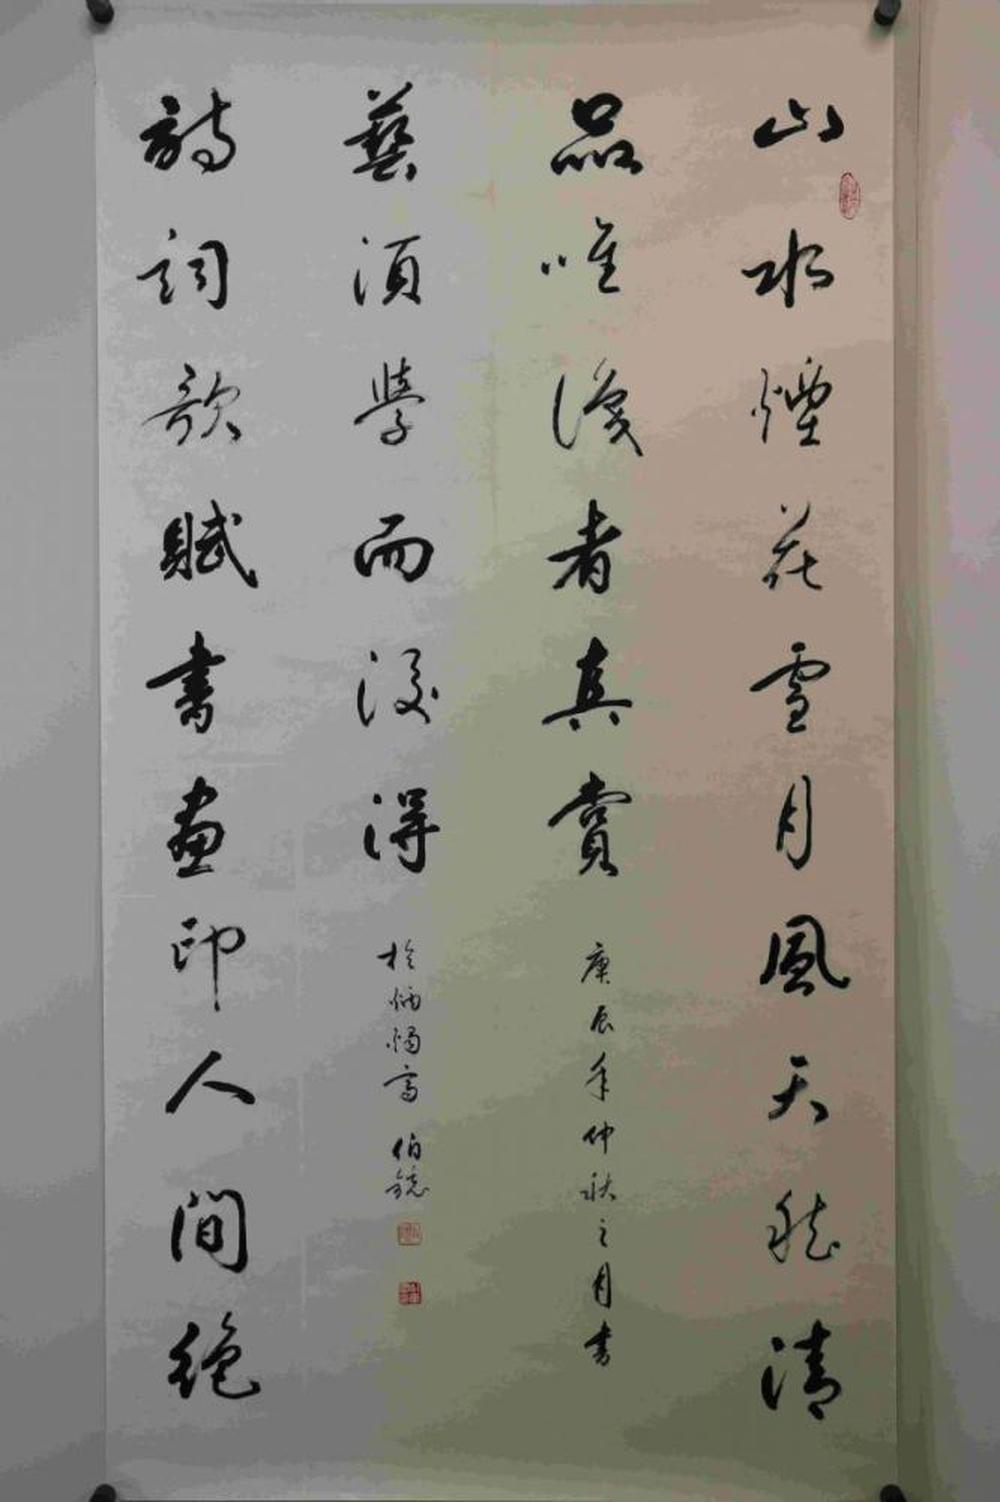 山水煙花雪月風天然清
品唯識者真賞
詩詞歌賦書畫印人間絕
藝須學而後得
庚辰年仲秋之月書
於炳燭齋 伯